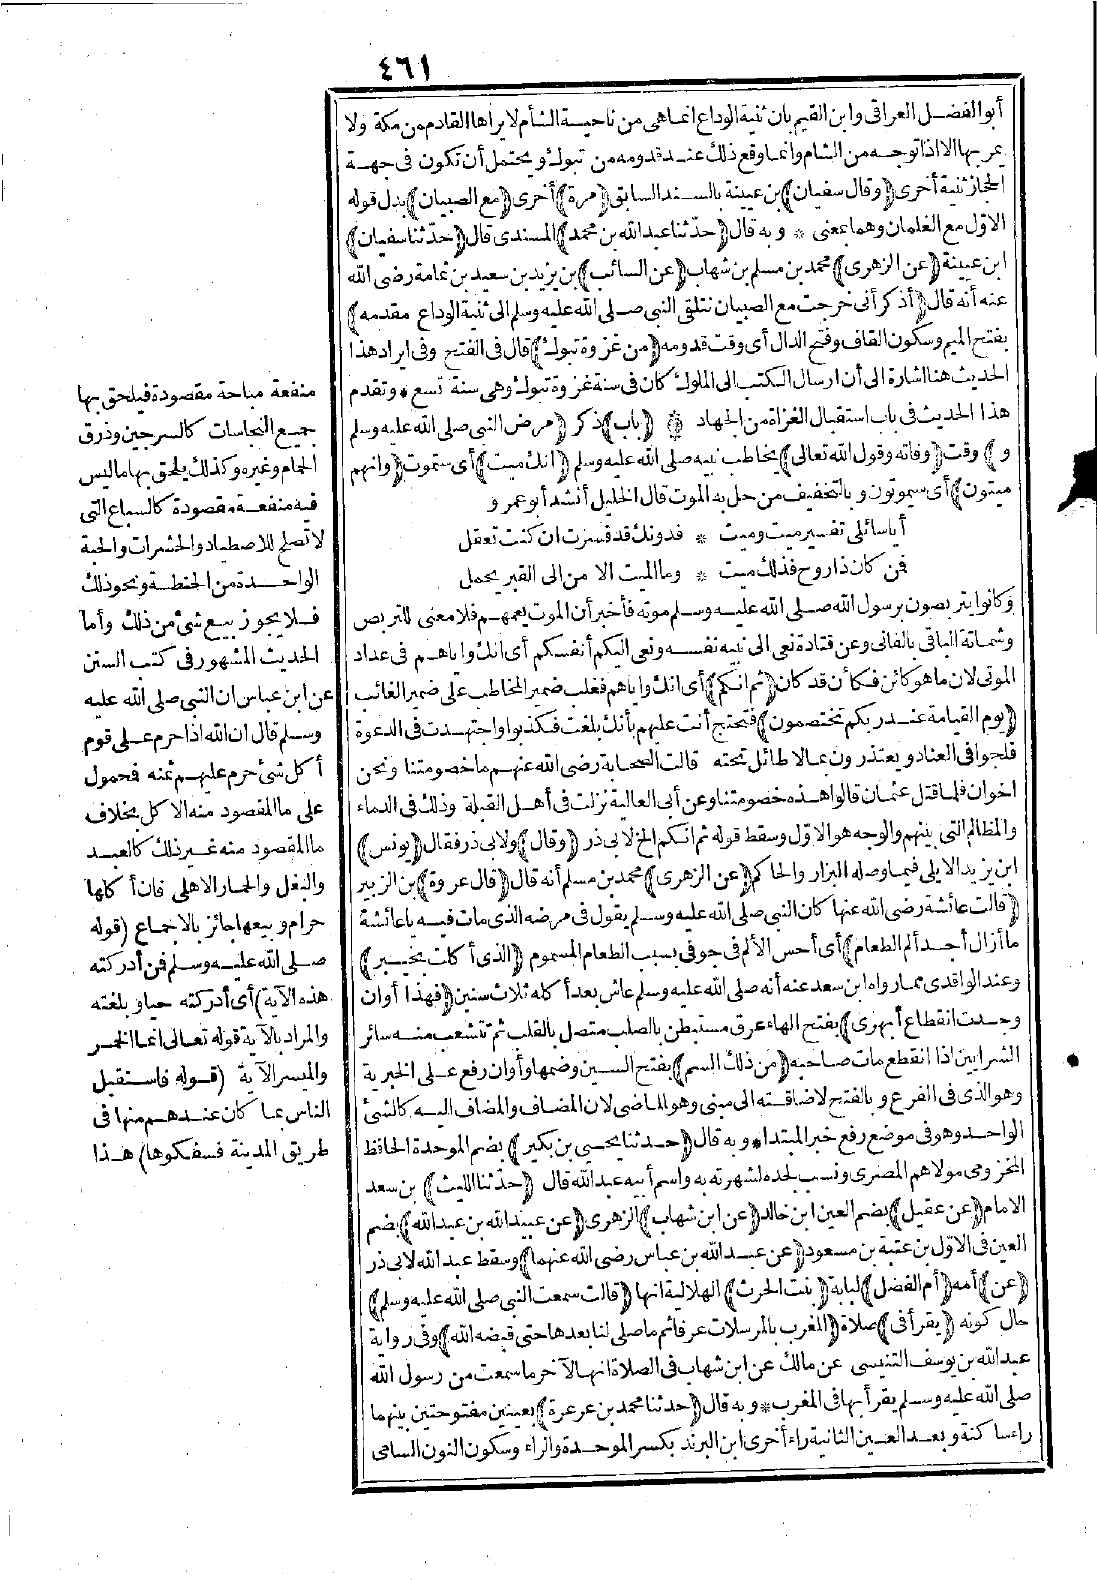 ٤٦١
أبو الفضل العراقى وابن القيم بان ثنية الوداع انما هى من ناحية الشأم لا يراها القادم من مكة ولا
يمر بها الا اذا توجه من الشام وانما وقع ذلك عند قدومه من تبوك ويحتمل أن تكون فى جهة
الحجاز ثنية أخرى (وقال سفيان) بن عيينة بالسند السابق (مرة) أخرى (مع الصبيان) بدل قوله
الاوّل مع الغلمان وهما بمعنى * وبه قال (حدّثنا عبد الله بن محمد) المسندى قال (حدّثنا سفيان)
ابن عيينة (عن الزهرى) محمد بن مسلم بن شهاب (عن السائب) بن يزيد بن سعيد بن ثمامة رضى الله
عنه أنه قال (أذكر أنى خرجت مع الصبيان نتلقى النبى صلى الله عليه وسلم الى ثنية الوداع مقدمه)
بفتح الميم وسكون القاف وفتح الدال أى وقت قدومه (من غزوة تبوك) قال فى الفتح وفى ايراد هذا
الحديث هنا اشارة الى أن ارسال الكتب الى الملوك كان فى سنة غزوة تبوك وهى سنة تسع * وتقدم
هذا الحديث فى باب استقبال الغزاة من الجهاد * (باب) ذكر (مرض النبى صلى الله عليه وسلم
و) وقت (وفاته وقول الله تعالى) يخاطب نبيه صلى الله عليه وسلم (انك ميت) أى ستموت (وانهم
ميتون) أى سيموتون وبالتخفيف من حل به الموت قال الخليل أنشد أبو عمرو
أيا سائلى تفسير ميت وميت * فدونك قد فسرت ان كنت تعقل
فمن كان ذا روح فذلك ميت * وما الميت الا من الى القبر يحمل
وكانوا يتربصون برسول الله صلى الله عليه وسلم موته فأخبر أن الموت يعمهم فلا معنى للتربص
وشماتة الباقى بالفانى وعن قتادة نعى الى نبيه نفسه ونعى اليكم أنفسكم أى انك واياهم فى عداد
الموتى لان ما هو كائن فكأن قد كان (ثم انكم) أى انك واياهم فغلب ضمير المخاطب على ضمير الغائب
(يوم القيامة عند ربكم تختصمون) فتحتج أنت عليهم بأنك بلغت فكذبوا واجتهدت فى الدعوة
فلجوا فى العناد ويعتذرون بما لا طائل تحته قالت الصحابة رضى الله عنهم ما خصومتنا ونحن
اخوان فلما قتل عثمان قالوا هذه خصومتنا وعن أبى العالية نزلت فى أهل القبلة وذلك فى الدماء
والمظالم التى بينهم والوجه هو الاوّل وسقط قوله ثم انكم الخ لابى ذر (وقال) ولابى ذر فقال (يونس)
ابن يزيد الايلى فيما وصله البزار والحاكم (عن الزهرى) محمد بن مسلم أنه قال (قال عروة) بن الزبير
(قالت عائشة رضى الله عنها كان النبى صلى الله عليه وسلم يقول فى مرضه الذى مات فيه يا عائشة
ما أزال أجد ألم الطعام) أى أحس الألم فى جوفى بسبب الطعام المسموم (الذى أكلت بخيبر)
وعند الواقدى مما رواه ابن سعد عنه أنه صلى الله عليه وسلم عاش بعد أكله ثلاث سنين (فهذا أوان
وجدت انقطاع أبهرى) بفتح الهاء عرق مستبطن بالصلب متصل بالقلب ثم تتشعب منه سائر
الشرايين اذا انقطع مات صاحبه (من ذلك السم) بفتح السين وضمها وأوان رفع على الخبرية
وهو الذى فى الفرع وبالفتح لاضافته الى مبنى وهو الماضى لان المضاف والمضاف اليه كالشئ
الواحد وهو فى موضع رفع خبر المبتدا * وبه قال (حدثنا يحيى بن بكير) بضم الموحدة الحافظ
المخزومى مولاهم المصرى ونسب لجده لشهرته به واسم أبيه عبد الله قال (حدّثنا الليث) بن سعد
الامام (عن عقيل) بضم العين ابن خالد (عن ابن شهاب) الزهرى (عن عبيد الله بن عبد الله) بضم
العين فى الاوّل بن عتبة بن مسعود (عن عبد الله بن عباس رضى الله عنهما) وسقط عبد الله لابى ذر
(عن) أمه (أم الفضل) لبابة (بنت الحرث) الهلالية انها (قالت سمعت النبى صلى الله عليه وسلم)
حال كونه (يقرأ فى) صلاة (المغرب بالمرسلات عرفا ثم ما صلى لنا بعدها حتى قبضه الله) وفى رواية
عبد الله بن يوسف التنيسى عن مالك عن ابن شهاب فى الصلاة انها لآخر ما سمعت من رسول الله
صلى الله عليه وسلم يقرأ بها فى المغرب * وبه قال (حدثنا محمد بن عرعرة) بعينين مفتوحتين بينهما
راء ساكنة وبعد العين الثانية راء أخرى ابن البرند بكسر الموحدة والراء وسكون النون السامى
منفعة مباحة مقصودة فيلحق بها
جميع النجاسات كالسرجين وذرق
الحمام وغيره وكذلك يلحق بها ما ليس
فيه منفعة مقصودة كالسباع التى
لا تصلح للاصطياد والحشرات والحبة
الواحدة من الحنطة ونحو ذلك
فلا يجوز بيع شئ من ذلك وأما
الحديث المشهور فى كتب السنن
عن ابن عباس ان النبى صلى الله عليه
وسلم قال ان الله اذا حرم على قوم
أكل شئ حرم عليهم ثمنه فمحمول
على ما المقصود منه الاكل بخلاف
ما المقصود منه غير ذلك كالعبد
والبغل والحمار الاهلى فان أكلها
حرام وبيعها جائز بالاجماع (قوله
صلى الله عليه وسلم فمن أدركته
هذه الآية) أى أدركته حيا وبلغته
والمراد بالآية قوله تعالى انما الخمر
والميسر الآية (قوله فاستقبل
الناس بما كان عندهم منها فى
طريق المدينة فسفكوها) هذا